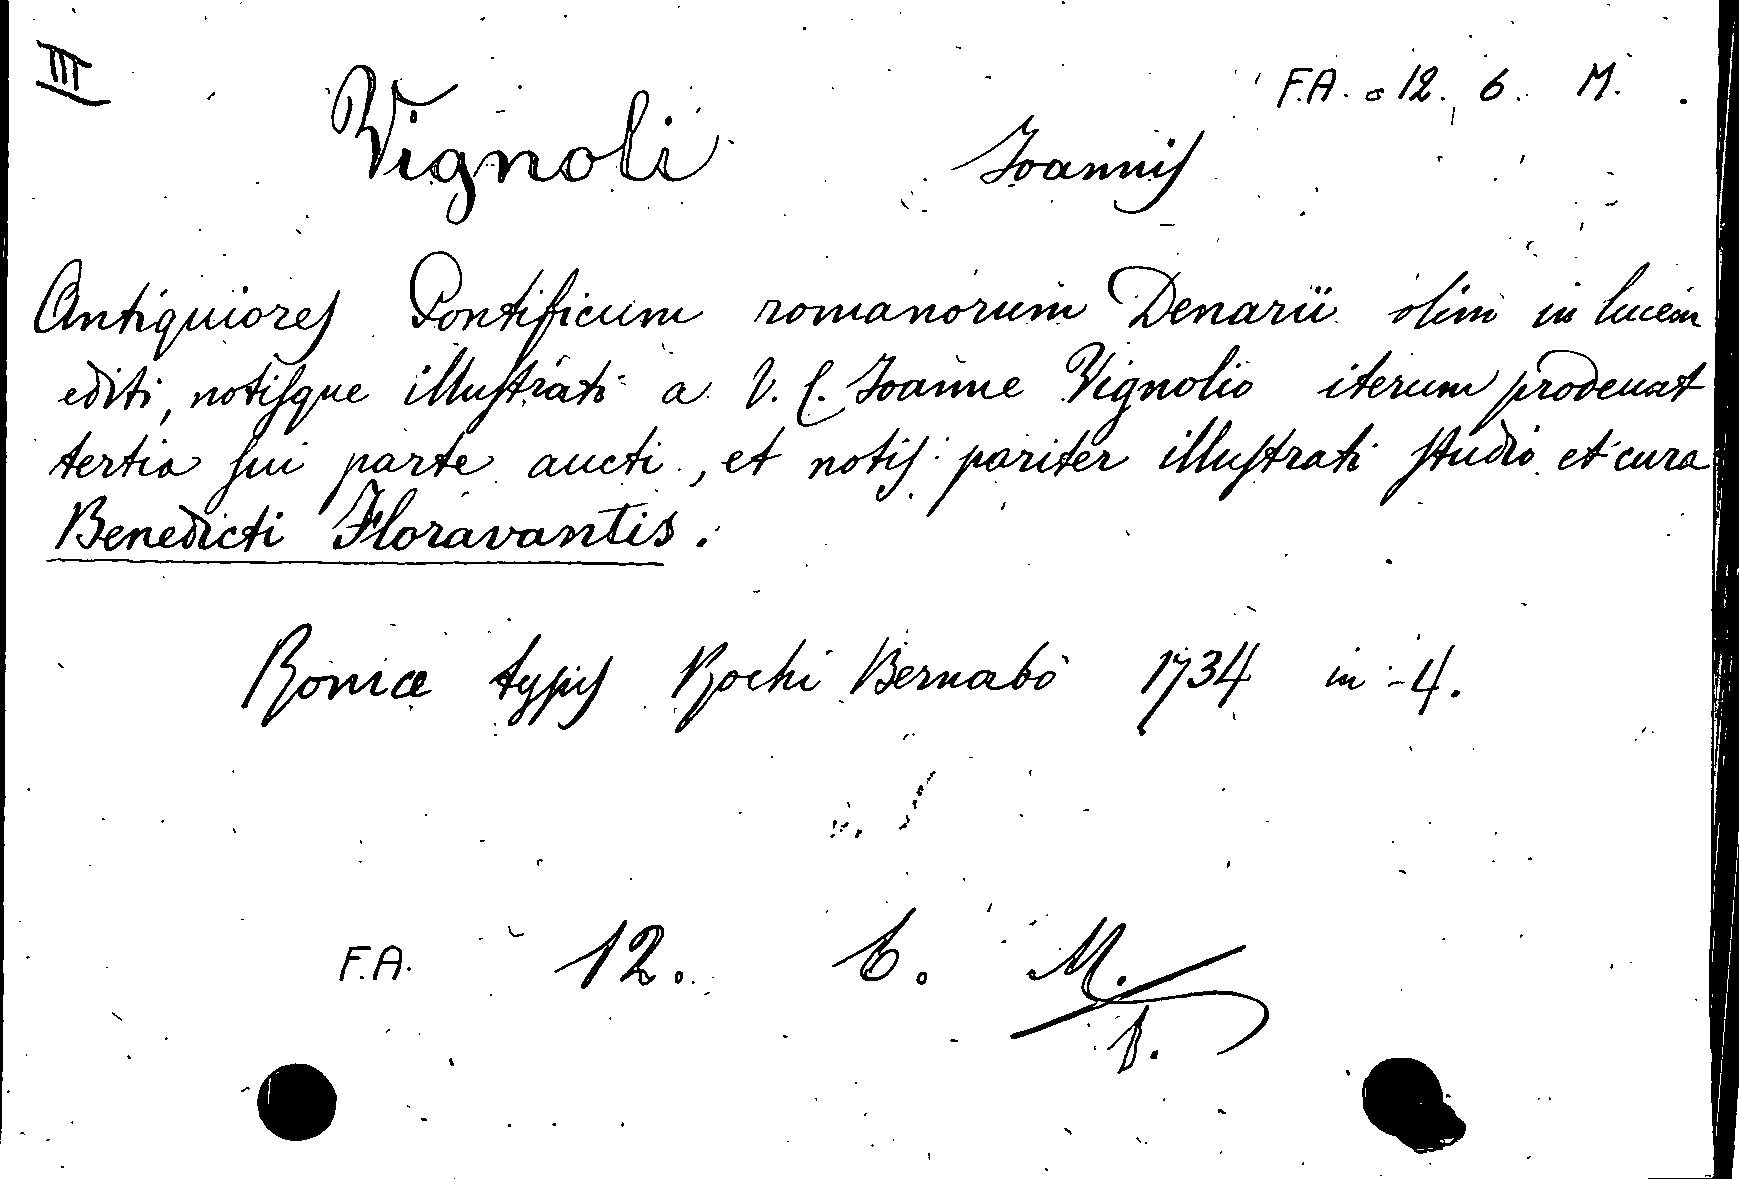 III
F.A. 12. 6. M.
Vignoli Joannis
Antiquiores Pontificum romanorum Denarii olim in lucem
editi, notisque illustrati a V. C. Joanne Vignolio iterum prodeunt
tertia sui parte aucti, et notis pariter illustrati studio et cura
Benedicti Floravantis.
Romæ typis Rochi Bernabò 1734 in-4.
F.A. 12. 6. M.